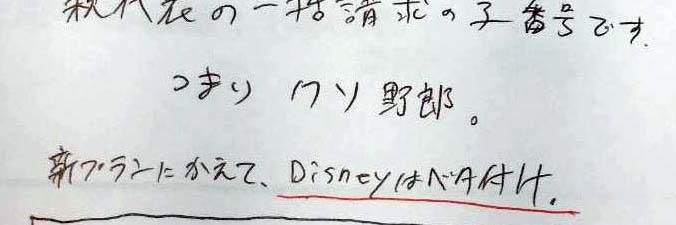 親代表の一括請求の子番号です.
つまり クソ野郎。
新プランにかえて、Disneyはベタ付け.